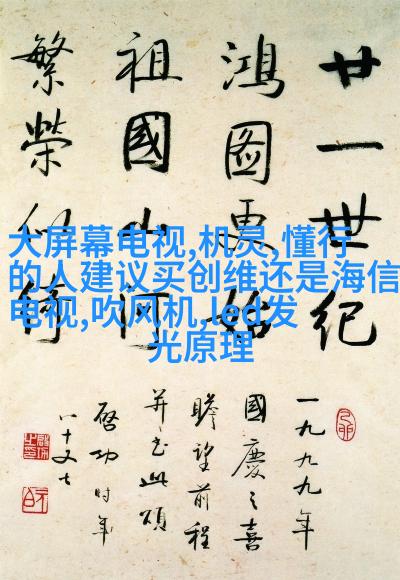 大屏幕电视,机灵,懂行
的人建议买创维还是海信
电视,吹风机,led发
光原理
廿一世纪
鸿图更始
祖國山河
繁榮似绮
一九九九年
國慶之喜
瞻望前程
并书此颂
启功时年
八十又七